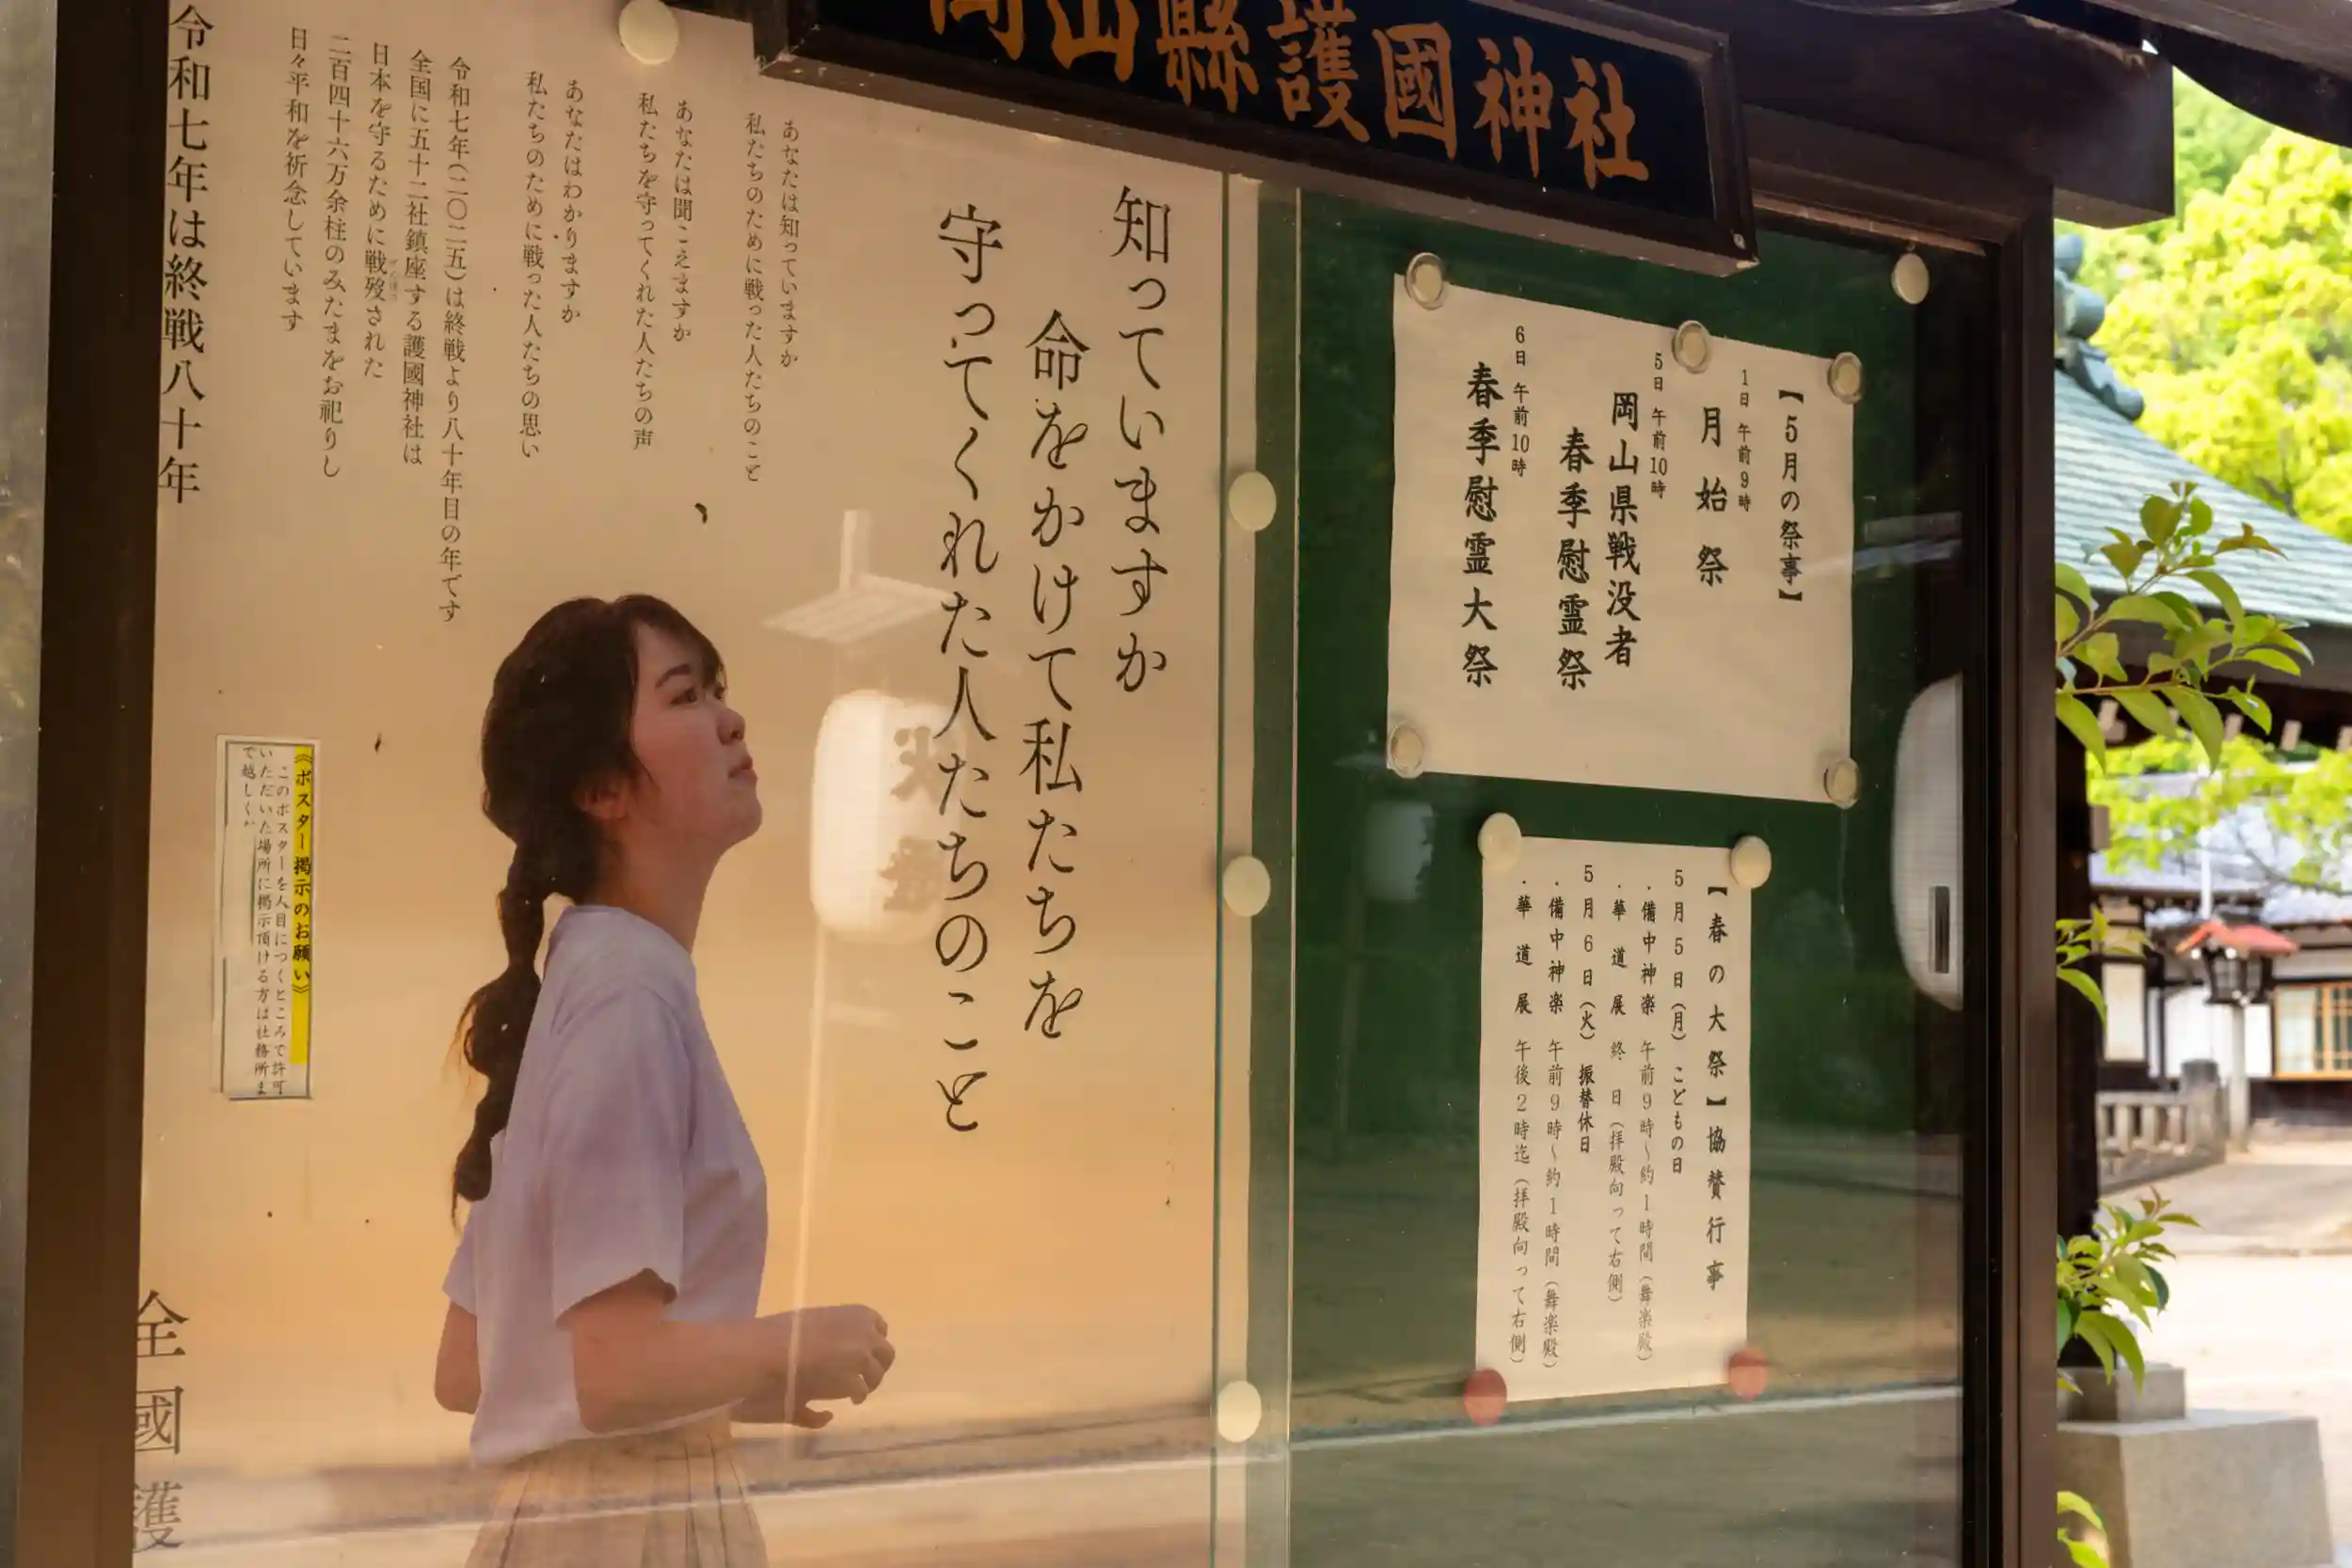 岡山縣護國神社
知っていますか
命をかけて私たちを
守ってくれた人たちのこと
あなたは知っていますか
私たちのために戦った人たちのこと
あなたは聞こえますか
私たちを守ってくれた人たちの声
あなたはわかりますか
私たちのために戦った人たちの思い
令和七年(二〇二五)は終戦より八十年目の年です
全国に五十二社鎮座する護國神社は
日本を守るために戦歿された
二百四十六万余柱のみたまをお祀りし
日々平和を祈念しています
令和七年は終戦八十年
全國護
《ポスター掲示のお願い》
このポスターを人目につくところで許可
いただいた場所に掲示頂ける方は社務所ま
で越しくだ
【5月の祭事】
1日 午前9時
月始祭
5日 午前10時
岡山県戦没者
春季慰霊祭
6日 午前10時
春季慰霊大祭
【春の大祭】協賛行事
5月5日(月) こどもの日
・備中神楽 午前9時~約1時間(舞楽殿)
・華道展 終日(拝殿向って右側)
5月6日(火) 振替休日
・備中神楽 午前9時~約1時間(舞楽殿)
・華道展 午後2時迄(拝殿向って右側)